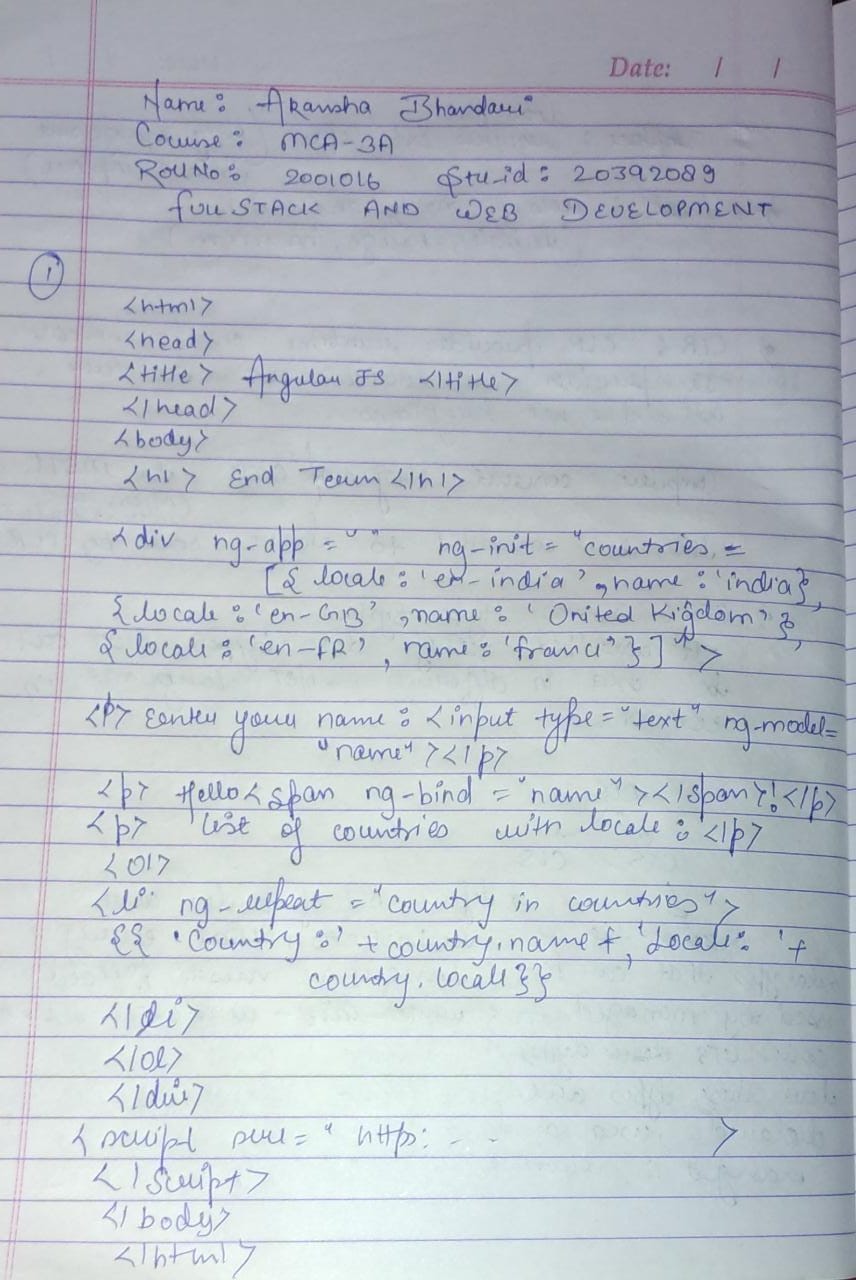 Date: / /
Name: Akansha Bhandari
Course: MCA-3A
Roll No: 2001016 Stu-id: 20392089
full STACK AND WEB DEVELOPMENT
1
<html>
<head>
<title> Angular JS </title>
</head>
<body>
<h1> End Term </h1>
<div ng-app = " " ng-init = "countries =
[{ locale : 'en-india', name : 'india},
{ locale : 'en-GB', name : ' United Kigdom' },
{ locale : 'en-FR', name : 'france' } ] ">
<p> Eenter your name : <input type = "text" ng-model=
"name" ></p>
<p> Hello < span ng-bind = "name" ></span>!</p>
<p> list of countries with locale : </p>
<ol>
<li ng-repeat = "country in countries">
{{ 'Country :' + country.name + , 'Locale: ' +
country.locale }}
</li>
</ol>
</div>
< script src = " http: - - >
</script>
</body>
</html>